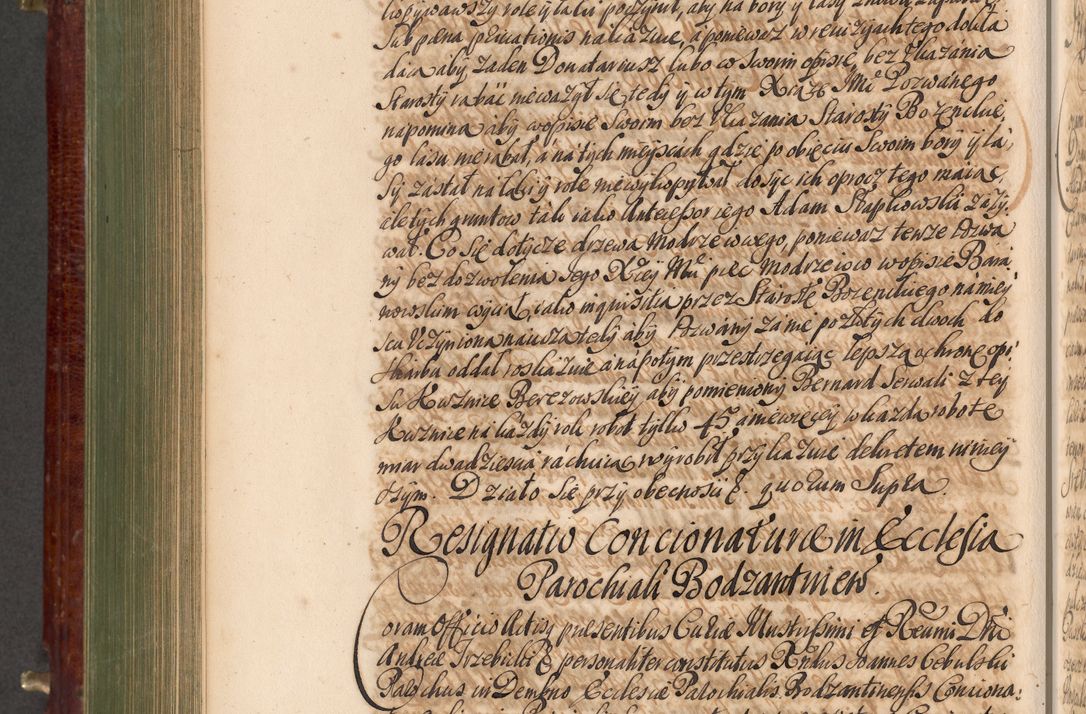 kopywawszy role y łaki poczynił, aby na bory y lasy
sub pæna privationis nakazuie, a poniewaz w rewizyach tego dokła
da ca aby zaden Donatariusz lubo co w swoim opisie, bez Ukazania
Starosty rabać nieważył się tedy y w tym Xiąże Jmć Pozwanego
napomina aby w opisie swoim bez Ukazania Starosty Bozenckie,
go lasu nierabał, a na tych mieyscach gdzie po obięciu swoim bory y la,
sy zastał na łaki y role niewykopywał dosyc ich oprocz tego maiąc,
ale tych gruntow tak iako Antecessor iego Adam Słapkowski zazy,
wał. Co się dotycze drzewa Modrzewiowego, poniewaz tenze Pozwa
ny bez dozwolenia Jego Xcey Mci pięc Modrzewiow w opisie Bara
nowskim wyciął, iako inquisitia przez Starostę Bozenckiego na miey
scu Uczyniona naucza tedy aby Pozwany za nie po złotych dwoch do
skarbu oddał roskazuie a napotym przestrzegaiąc lepszą ochronę opi,
su Kuznice Berezowskiey, aby pomieniony Bernard Serwali z tey
Kuznice na kazdy rok robot tylko 45 a niewięcey w kazdą robotę
miar dwadziescia rachuiąc wyrobił przykazuie dekretem niniey
szym. Działo się przy obecnosci &. quorum supra.
Resignatio Concionaturæ in Ecclesia
Parochiali Bodzantinen.
Coram Officio Actisq præsentibus Curiæ Illustrissimi et Reverendissimi Dni
Andreæ Trzebicki &. personaliter constitutus Rndus Joannes Cebulski
Parochus in Dembno Ecclesiæ Parochialis Bodzantinensis Conciona: